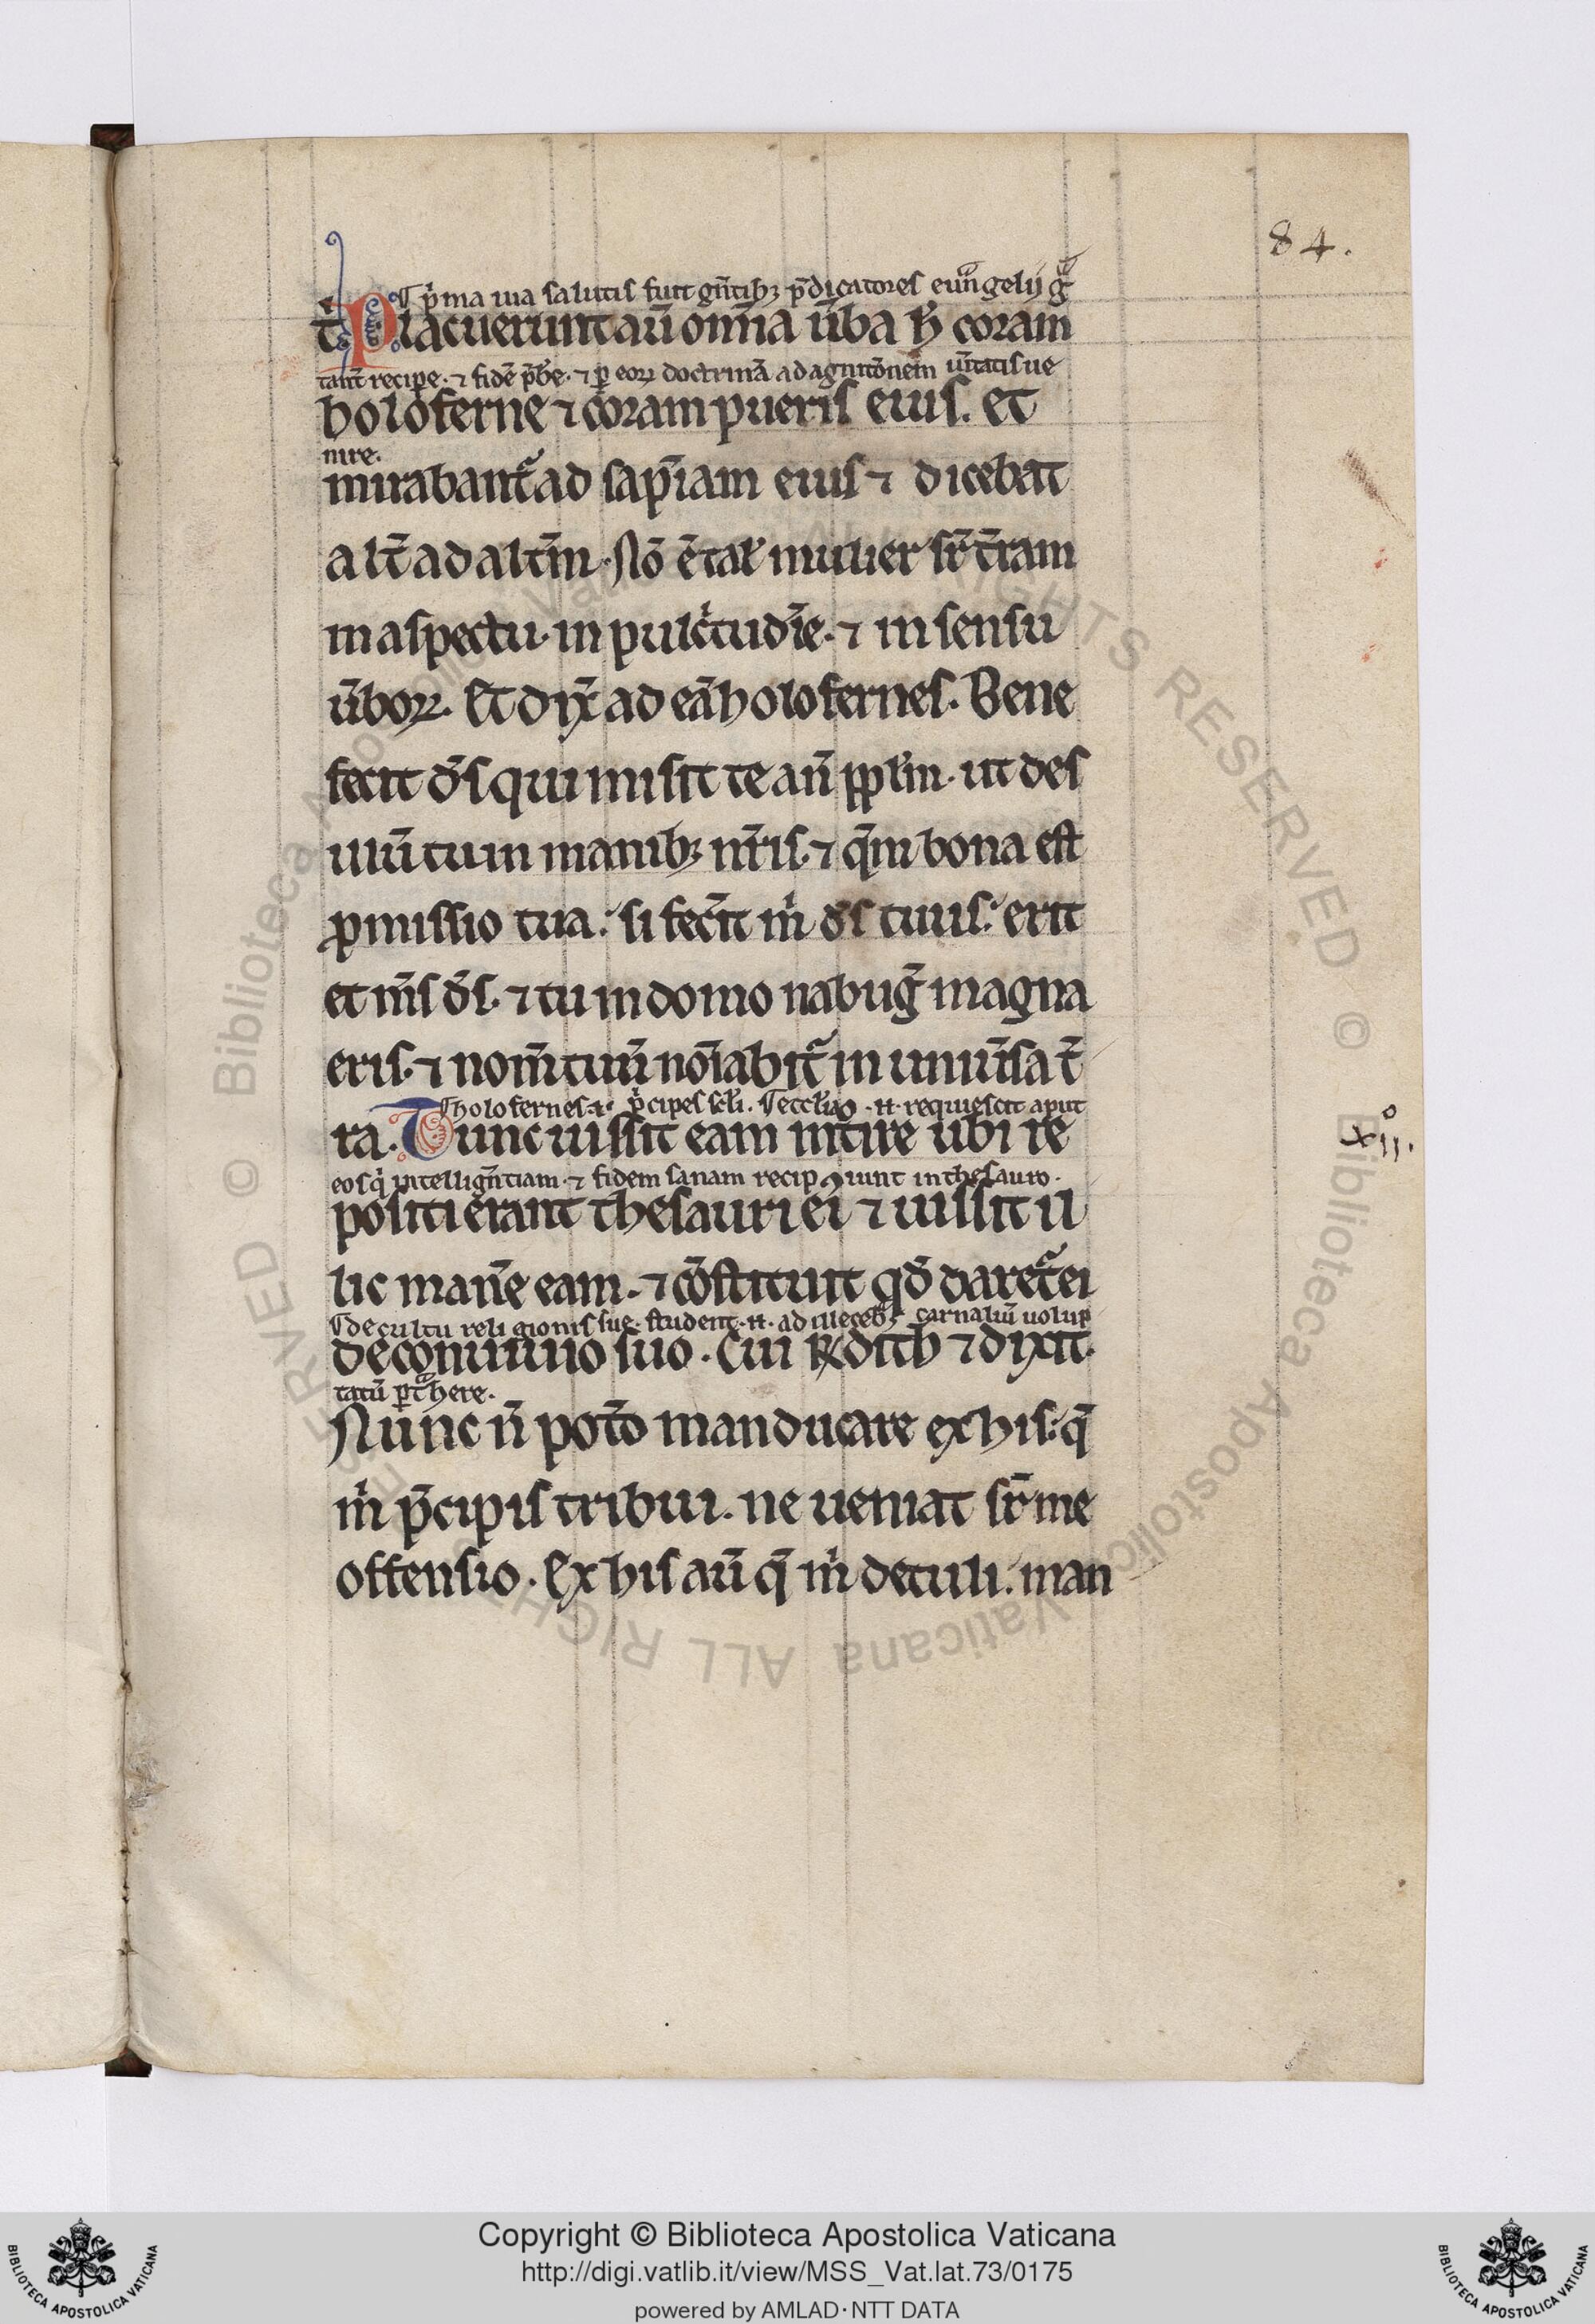 84.
p̾ma uia salutis fuit gn̄tibꝫ p̄dicatores euangelij g̃
t̄ Placuerunt aū om̄ia ūba ħ coram
tant̄ recipe· ⁊ fidē p̄be· ⁊ ꝑ eoꝝ doctrinā ad agnitōnem ūitatis ue
holoferne ⁊ coram pueris eius. et
nire.
mirabant᷑ ad sap̄iam eius ⁊ dicebat
alt̄ ad altm̄· Nō ē tal̄ mulier sr̄ t̄ram
in aspectu· in pulc̾tudīe· ⁊ in sensu
ūboꝝ. Et dix̄ ad eā holofernes. Bene
fecit d̄s qui misit te an̄ pp̄lm· ut des
uiū tu in manibꝫ nr̄is· ⁊ qm̄ bona est
ꝓmissio tua. si fec̄it m̾ d̄s tuus. erit
et m̄s d̄s. ⁊ tu in domo nabug̃ magna
eris. ⁊ nom̄ tuū noīabit᷑ in uniūsa t̄
holofernes .i. p̾cipes scl̄i. eccl̄iā .n. requiescit aput
ra. Tunc iussit eam intire ubi re
eos q̾ intellign̄tiam· ⁊ fidem sanam recipiunt in thesauro.
positi erant thesauri ei᷒ ⁊ iussit il
lic man̄e eam. ⁊ cōstituit qd̄ daret᷑ ei
de cultu religionis sue· student .n. ad illecebᵃs carnaliū uolup
de conuiuio suo. Cui R̄ iudith ⁊ dixit.
tatū ꝑt̾here.
Nunc n̄ pot̄o manducare ex his· q̄
m̾ p̄cipis tribui. ne ueniat sr̄ me
offensio. Ex his aū q̄ m̾ detuli. man
x̊ıı.
Copyright © Biblioteca Apostolica Vaticana
http://digi.vatlib.it/view/MSS_Vat.lat.73/0175
powered by AMLAD·NTT DATA
BIBLIOTECA APOSTOLICA VATICANA
BIBLIOTECA APOSTOLICA VATICANA
© Biblioteca Apostolica Vaticana ALL RIGHTS RESERVED © Biblioteca Apostolica Vaticana ALL RIGHTS RESERVED